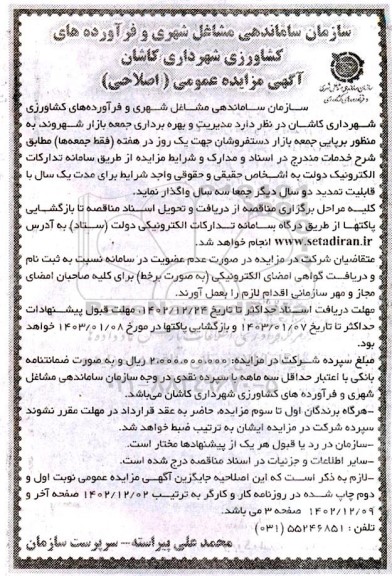 سازمان ساماندهی مشاغل شهری و فرآورده های
کشاورزی شهرداری کاشان
آگهی مزایده عمومی ( اصلاحی)
سازمان ساماندهی مشاغل شهری و فرآورده‌های کشاورزی
شهرداری کاشان در نظر دارد مدیریت و بهره برداری جمعه بازار شهروند، به
منظور برپایی جمعه بازار دستفروشان جهت یک روز در هفته (فقط جمعه‌ها) مطابق
شرح خدمات مندرج در اسناد و مدارک و شرایط مزایده از طریق سامانه تدارکات
الکترونیک دولت به اشخاص حقیقی و حقوقی واجد شرایط برای مدت یک سال با
قابلیت تمدید دو سال دیگر جمعا سه سال واگذار نماید.
کلیه مراحل برگزاری مناقصه از دریافت و تحویل اسناد مناقصه تا بازگشایی
پاکتها از طریق درگاه سامانه تدارکات الکترونیکی دولت (ستاد) به آدرس
www.setadiran.ir انجام خواهد شد.
متقاضیان شرکت در مزایده در صورت عدم عضویت در سامانه نسبت به ثبت نام
و دریافت گواهی امضای الکترونیکی (به صورت برخط) برای کلیه صاحبان امضای
مجاز و مهر سازمانی اقدام لازم را بعمل آورند.
مهلت دریافت اسناد حداکثر تا تاریخ ۱۴۰۲/۱۲/۲۴، مهلت قبول پیشنهادات
حداکثر تا تاریخ ۱۴۰۳/۰۱/۰۷ و بازگشایی پاکتها در مورخ ۱۴۰۳/۰۱/۰۸ خواهد
بود.
مبلغ سپرده شرکت در مزایده: ۲،۰۰۰،۰۰۰،۰۰۰ ریال و به صورت ضمانتنامه
بانکی با اعتبار حداقل سه ماهه یا سپرده نقدی در وجه سازمان ساماندهی مشاغل
شهری و فرآورده های کشاورزی شهرداری کاشان می‌باشد.
-هرگاه برندگان اول تا سوم مزایده، حاضر به عقد قرارداد در مهلت مقرر نشوند
سپرده شرکت در مزایده ایشان به ترتیب ضبط خواهد شد.
-سازمان در رد یا قبول هر یک از پیشنهادها مختار است.
-سایر اطلاعات و جزئیات در اسناد مناقصه درج شده است.
-لازم به ذکر است که این اصلاحیه جایگزین آگهی مزایده عمومی نوبت اول و
دوم چاپ شده در روزنامه کار و کارگر به ترتیب ۱۴۰۲/۱۲/۰۲ صفحه آخر و
۱۴۰۲/۱۲/۰۹ صفحه ۳ می باشد.
تلفن : ۵۵۲۴۶۸۵۱ (۰۳۱)
محمد علی پیراسته- سرپرست سازمان